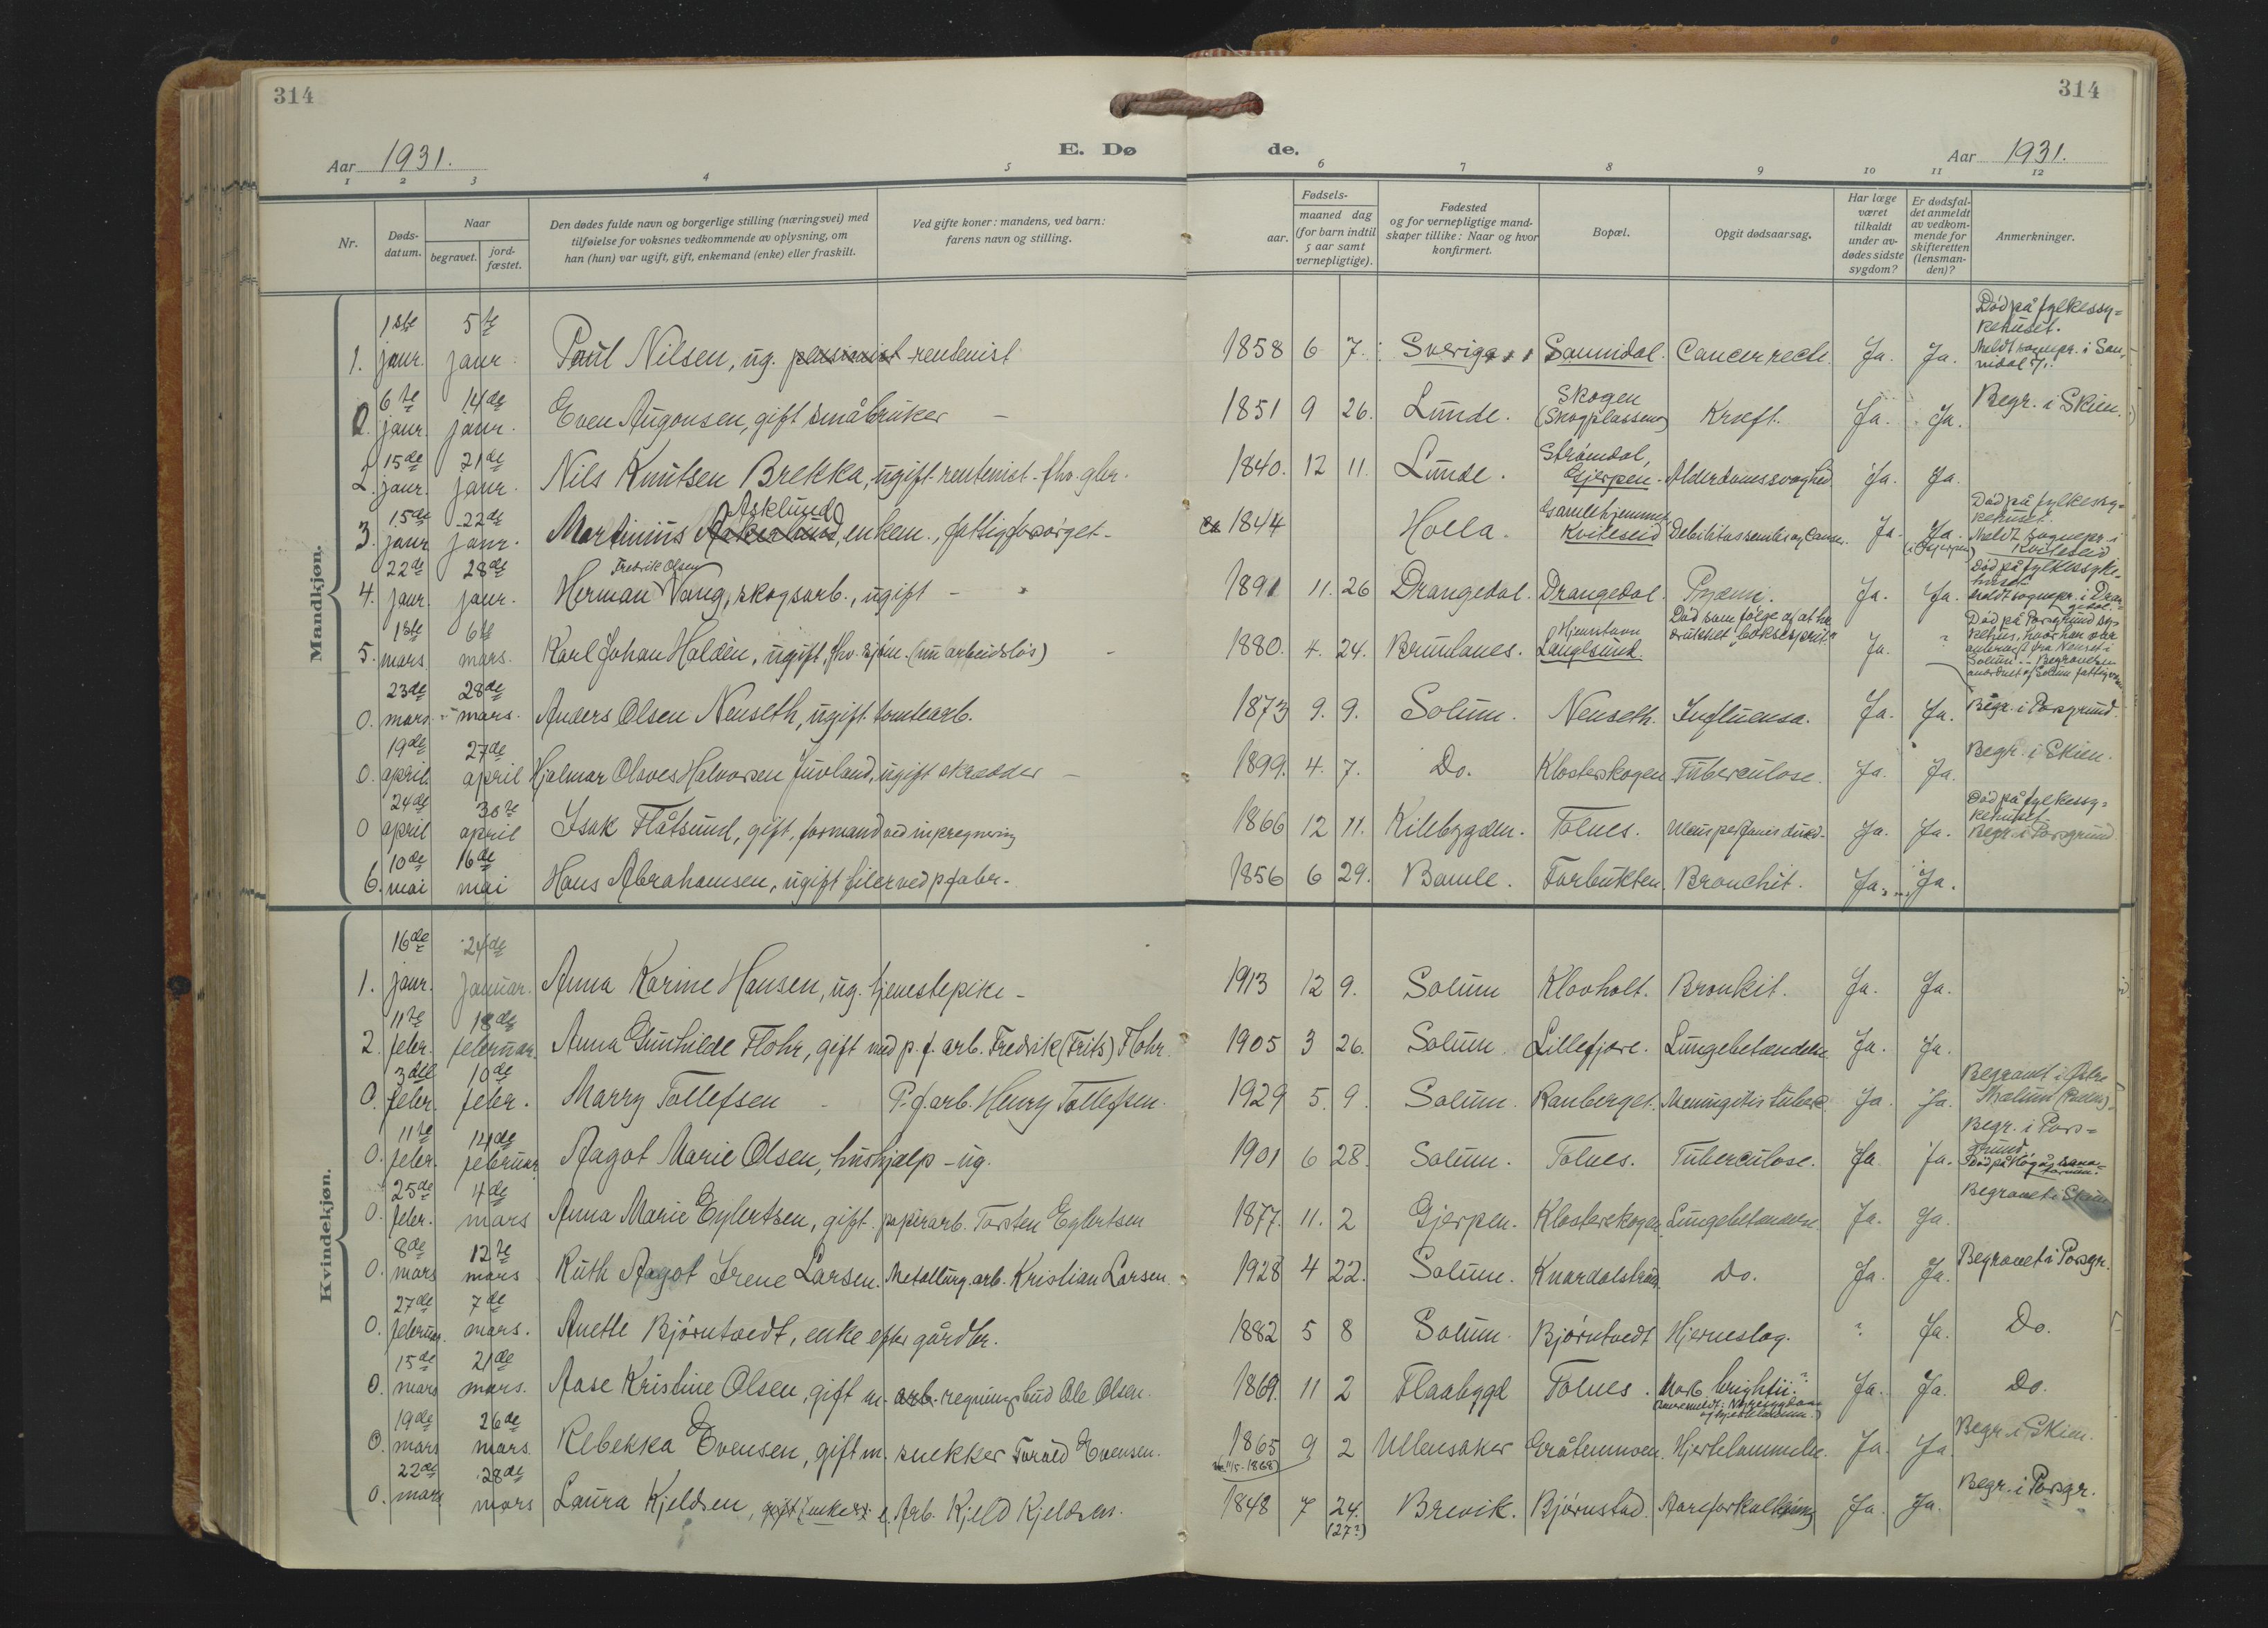 314
314
Aar 1931.
E. Dø
de.
Aar 1931.
1 2 3 4 5 6 7 8 9 10 11 12
Nr.
Døds-
datum.
Naar
begravet.
jord-
fæstet.
Den dødes fulde navn og borgerlige stilling (næringsvei) med
tilføielse for voksnes vedkommende av oplysning, om
han (hun) var ugift, gift, enkemand (enke) eller fraskilt.
Ved gifte koner: mandens, ved barn:
farens navn og stilling.
Fødsels-
aar.
maaned dag
(for barn indtil
5 aar samt
vernepligtige).
Fødested
og for vernepligtige mand-
skaper tillike: Naar og hvor
konfirmert.
Bopæl.
Opgit dødsaarsag.
Har læge
været
tilkaldt
under av-
dødes sidste
sygdom?
Er dødsfal-
det anmeldt
av vedkom-
mende for
skifteretten
(lensman-
den)?
Anmerkninger.
Mandkjøn.
1ste 5te Død på fylkessy=
kehuset.
1. janr. janr. Paul Nilsen, ug. pensionist rentenist 1858 6 7. Sverige Sannidal. Cancer recti. Ja. Ja. Meldt sognepr. i San-
nidal
6te 14de Skogen
0. janr. janr. Even Augonsen, gift småbruker – 1851 9 26. Lunde. (Skogplassen) Kræft. Ja. Ja. Begr. i Skien.
15de 21de Strømdal,
2. janr. janr. Nils Knutsen Brekka, ugift rentenist - fhv. gbr. 1840. 12 11. Lunde. Gjerpen. Alderdomssvaghed Ja. Ja.
15de 22de Asklund Gamlehjemmet Død på fylkessy=
kehuset.
3. janr. janr. Martinius Askerlund, enkem., fattigforsørget - ca 1844 Holla. Kviteseid Debilitas senilis og Cancer. Ja. Ja. (i Gjerpen) Meldt sognepr. i
Kviteseid
22de 28de Fredrik Olsen Død på fylkessyke-
huset
4. janr. janr. Herman Vang, skogsarb., ugift – 1891 11. 26 Drangedal. Drangedal. Pyæmi. Ja. Ja. Meldt sognepr. i Dran
gedal.
1ste 6te Hjemstavn Død som følge af at ha
drukket "boksesprit" Død på Porsgrund sy-
kehus, hvor han var
5. mars mars. Karl Johan Halden, ugift, fhv. sjøm. (nu arbeidsløs) – 1880. 4. 24. Brunlanes. Langesund. Ja. ? ankomst fra Nenset i
Solum. - Begravelsen
anordnet af Solum fattigvesen
23de 28de
0. mars. mars. Anders Olsen Nenseth, ugift tomtearb. 1873 9. 9. Solum. Nenseth. Influensa. Ja. Ja. Begr. i Porsgrund.
19de 27de
0. april april Hjalmar Olaves Halvorsen Juvland, ugift skrædder – 1899. 4. 7. Do. Klosterskogen Tuberculose. Ja. Ja. Begr. i Skien.
24de 30te Død på fylkessy=
kehuset
0 april april Isak Flåtsund, gift, formand ved impregnering 1866 12 11. Kilebygden. Tolnes. Ja. Ja. Begr. i Porsgrund
10de 16de
6. mai mai Hans Abrahamsen, ugift filer ved p.fabr. 1856 6 29. Bamle. Torbukten. Bronchit. Ja. Ja.
Kvindekjøn.
16de 24de
1. janr. januar. Anna Karine Hansen, ug. tjenestepike – 1913 12 9. Solum Klovholt. Bronkit. Ja. Ja.
11te 18de
2. febr. februar. Anna Gunhilde Flohr, gift med p.f. arb. Fredrik (Frits) Flohr. 1905 3 26. Solum. Lillefjære. Lungebetændelse Ja. Ja.
3die 10de
0. febr. febr. Marry Tollefsen – P.f.arb. Henry Tollefsen. 1929 5. 9. Solum. Ranberget. Meningitis tuberc. Ja. Ja. Begravet i Østre
11te 14de
0. febr. februar Aagot Marie Olsen, hushjælp – ug. 1901 6 28. Solum. Tolnes. Tuberculose. Ja. Ja. Begr. i Pors=
grund
Død på Høgås sana=
torium.
25de 4de
0. febr. mars Anna Marie Eylertsen, gift. papirarb. Torsten Eylertsen 1877. 11. 2 Gjerpen. Klosterskogen. Lungebetændelse Ja. Ja. Begravet i Skien
8de 12te
0. mars mars Ruth Aagot Irene Larsen. Metallurg.arb. Kristian Larsen. 1928 4 22. Solum. Knardalstrand. Do. Ja. Ja. Begravet i Porsgr.
27de 7de
0. februar. mars. Anette Bjørntvedt, enke efter gårdbr. 1882 5 8 Solum. Bjørntvedt Hjerneslag. ? Ja. Do.
15de 21de
0. mars mars. Aase Kristine Olsen, gift m. arb. regningsbud Ole Olsen. 1869. 11 2 Flaabygd Tolnes. Morb. brightii.? Ja. Ja. Do.
19de 26de
0. mars mars. Rebekka Evensen, gift m. snekker Torald Evensen. 1865 9 2 Ullensaker Gråtenmoen. Hjertelammelse. Ja. Ja. Begr. i Skien.
22de 28de
0. mars mars Laura Kjeldsen, gift (enke) e. Arb. Kjeld Kjeldsen. 1848 7 24. (27?) Brevik. Bjørnstad. Aareforkalkning Ja. Ja. Begr. i Porsgr.